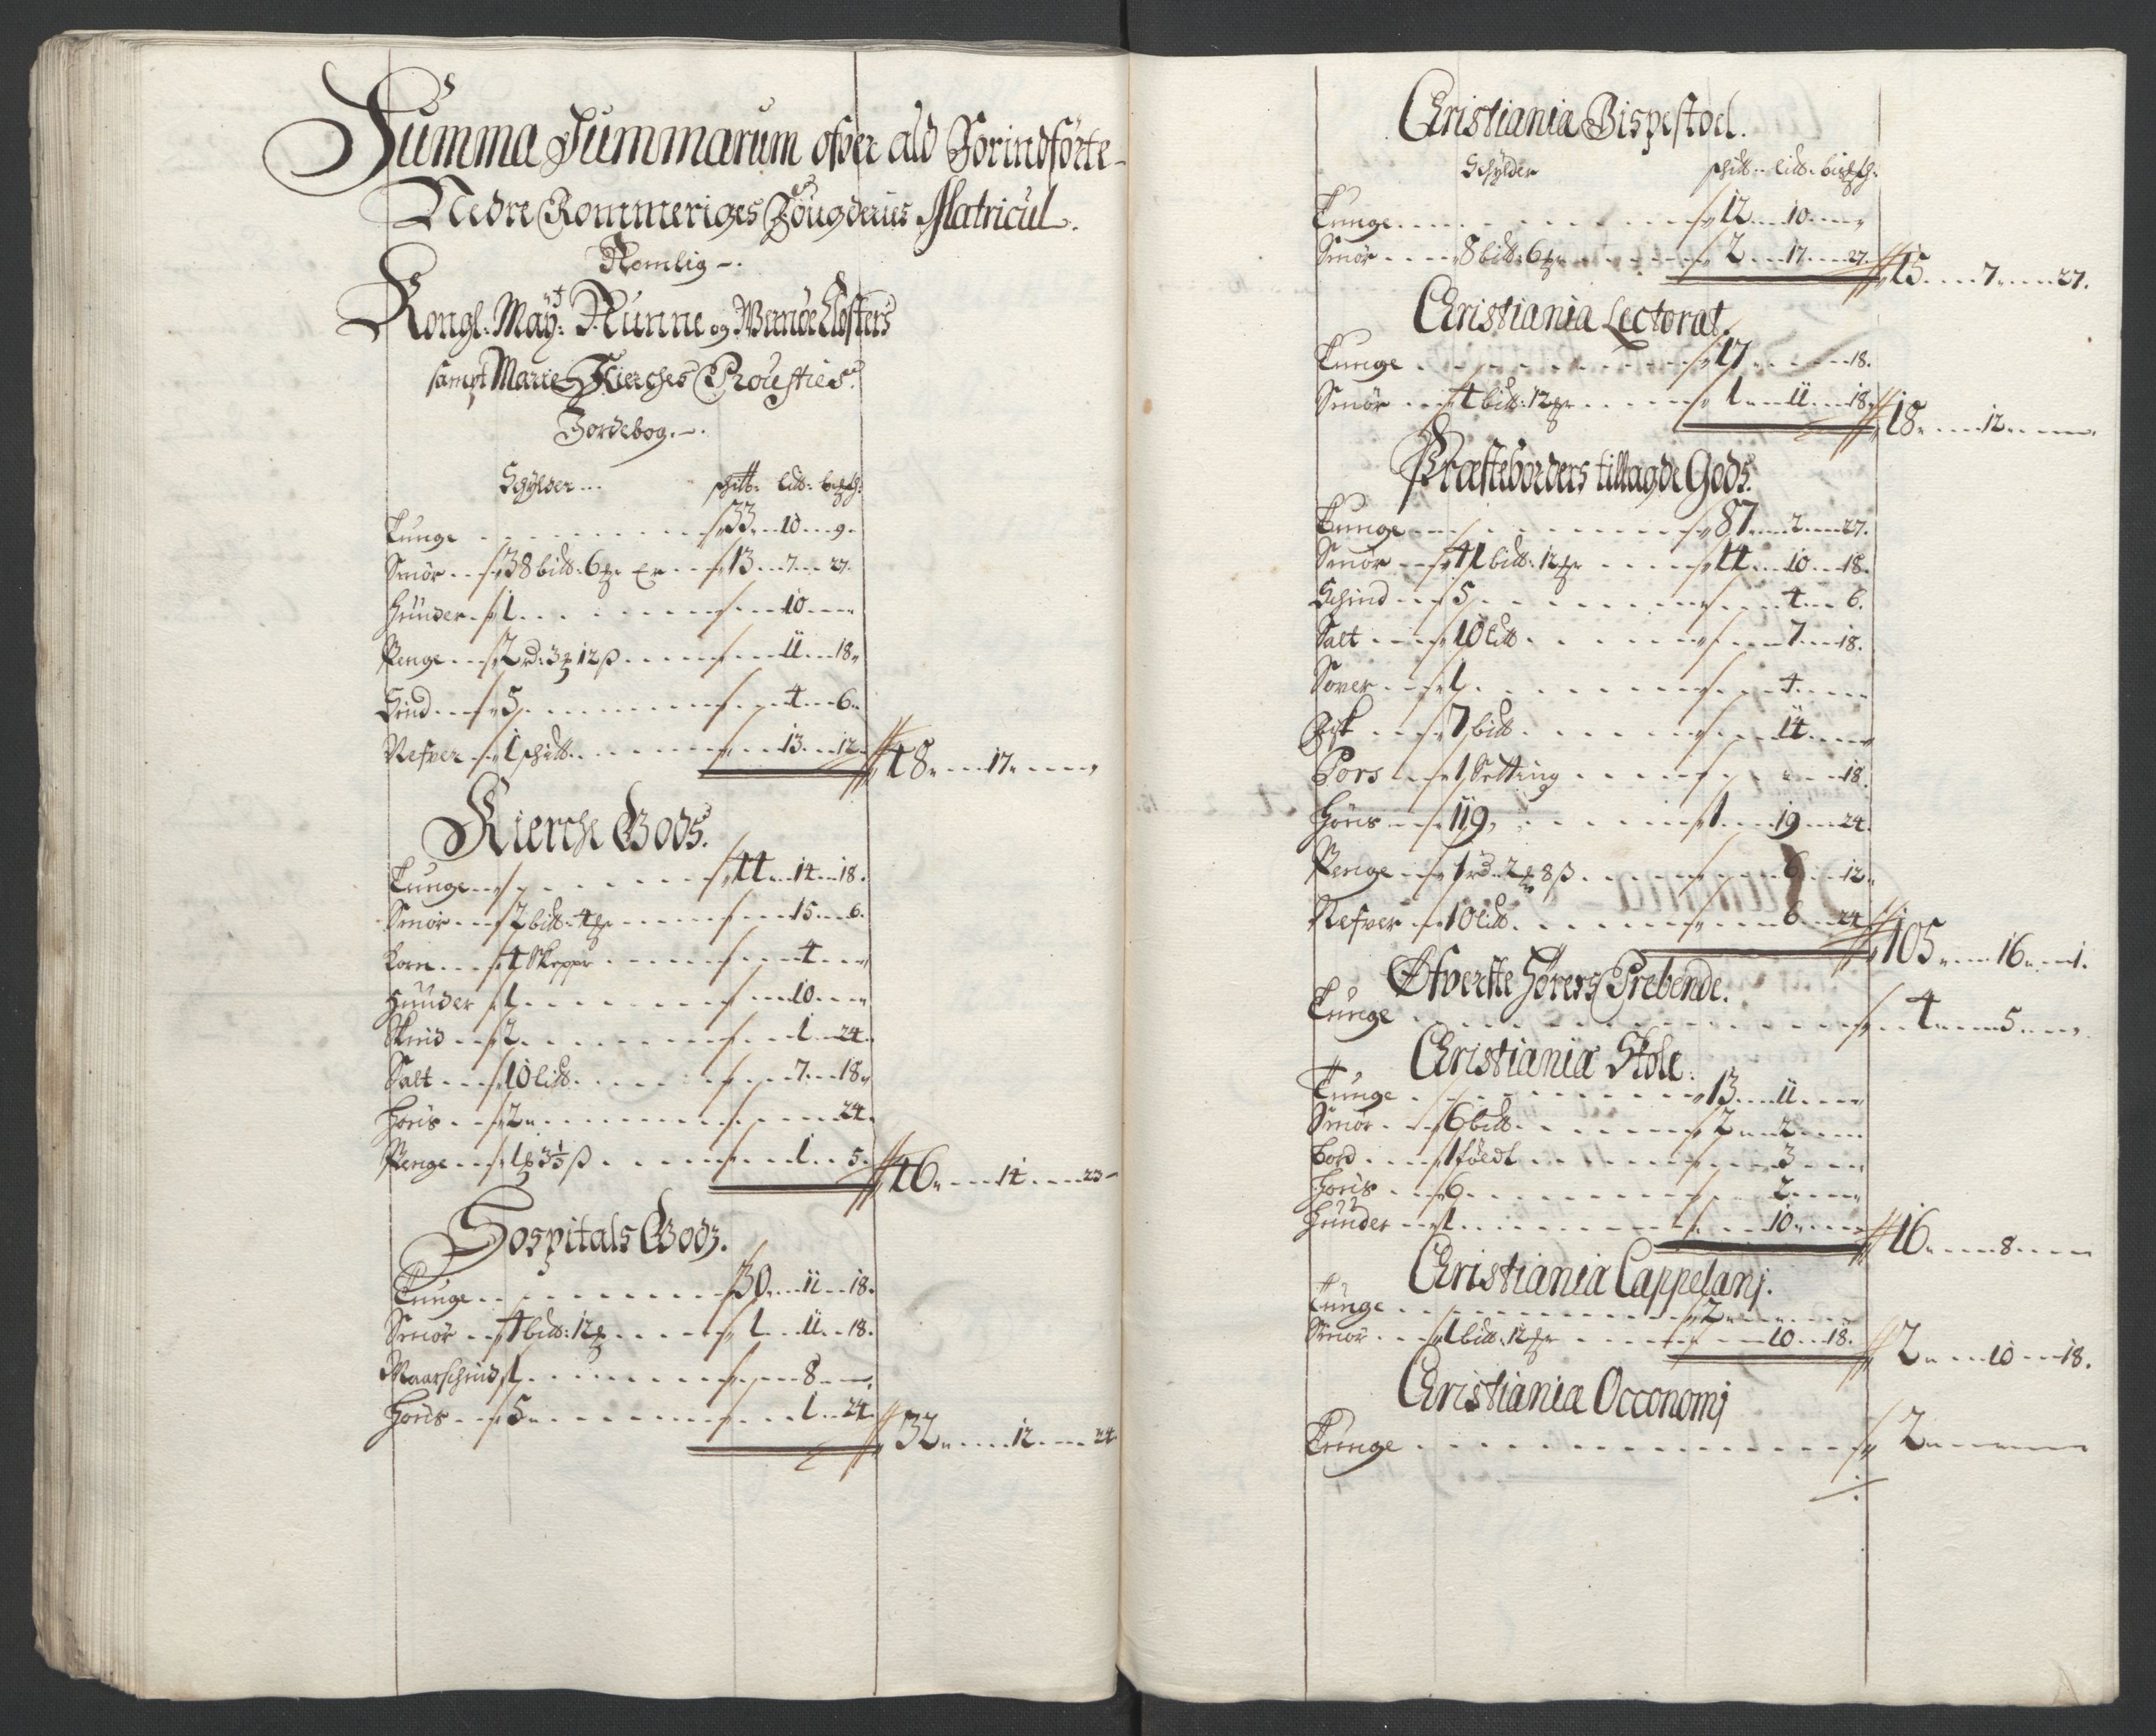 Summa Summarum ofver ald Forindförte
Nedre Rommeriges Fougderies Matricul.
Nemlig
Kongl: Mayt: Nunne og Wernøe Closters
sampt Marie Kierches Prousties
Jordebog.
Schylder schll: lll: 
Tunge 33 10 9
Smör 38 bll: 6 er 13 7 27
Hünder 1 10
Penge 2 rd: 3 12 ß 11 18
Skind 5 4 6
Nefver 1 schll 13 12 48 17
Kierche Gods.
Tunge 44 14 18
Smör 2 bll: 4 15 6
Korn 4 Skeppr 4
Hünder 1 10
Skind 2 1 24
Salt 10 lll 7 18
Höns 2 24
Penge 1 3½ ß 1 5 46 14 23
Hospitals Gods.
Tunge 30 11 18
Smör 4 bll: 12 1 11 18
Maarschind 1 8
Höns 5 1 24 32 12 24
Christiania Bispestoel.
Schylder schll lll 
Tunge 12 10
Smör 8 bll: 6 2 17 27 15 7 27
Christiania Lectorat.
Tunge 17 18
Smör 4 bll: 12 1 11 18 18 12
Præsteborders tillagde Gods.
Tunge 87 2 27
Smör 41 bll: 12 14 10 18
Schind 5 4 6
Salt 10 lll 7 18
Sover 1 4
Fisk 7 bll 14
Pors 1 Setting 18
Höns 119 1 19 24
Penge 1 rd 2 8 ß 6 12
Nefver 10 lll 6 24 105 16 1
Øfverste Hørers Prebende.
Tunge 4 5
Christianiæ Skole.
Tunge 13 11
Smör 6 bll 2 2
Bord 3
Höns 6 2
Hünder 1 10 16 8
Christiania Cappelanj.
Tunge 2
Smör 1 bll: 12 10 18 2 10 18
Christiania Oeconomj
Tunge 2